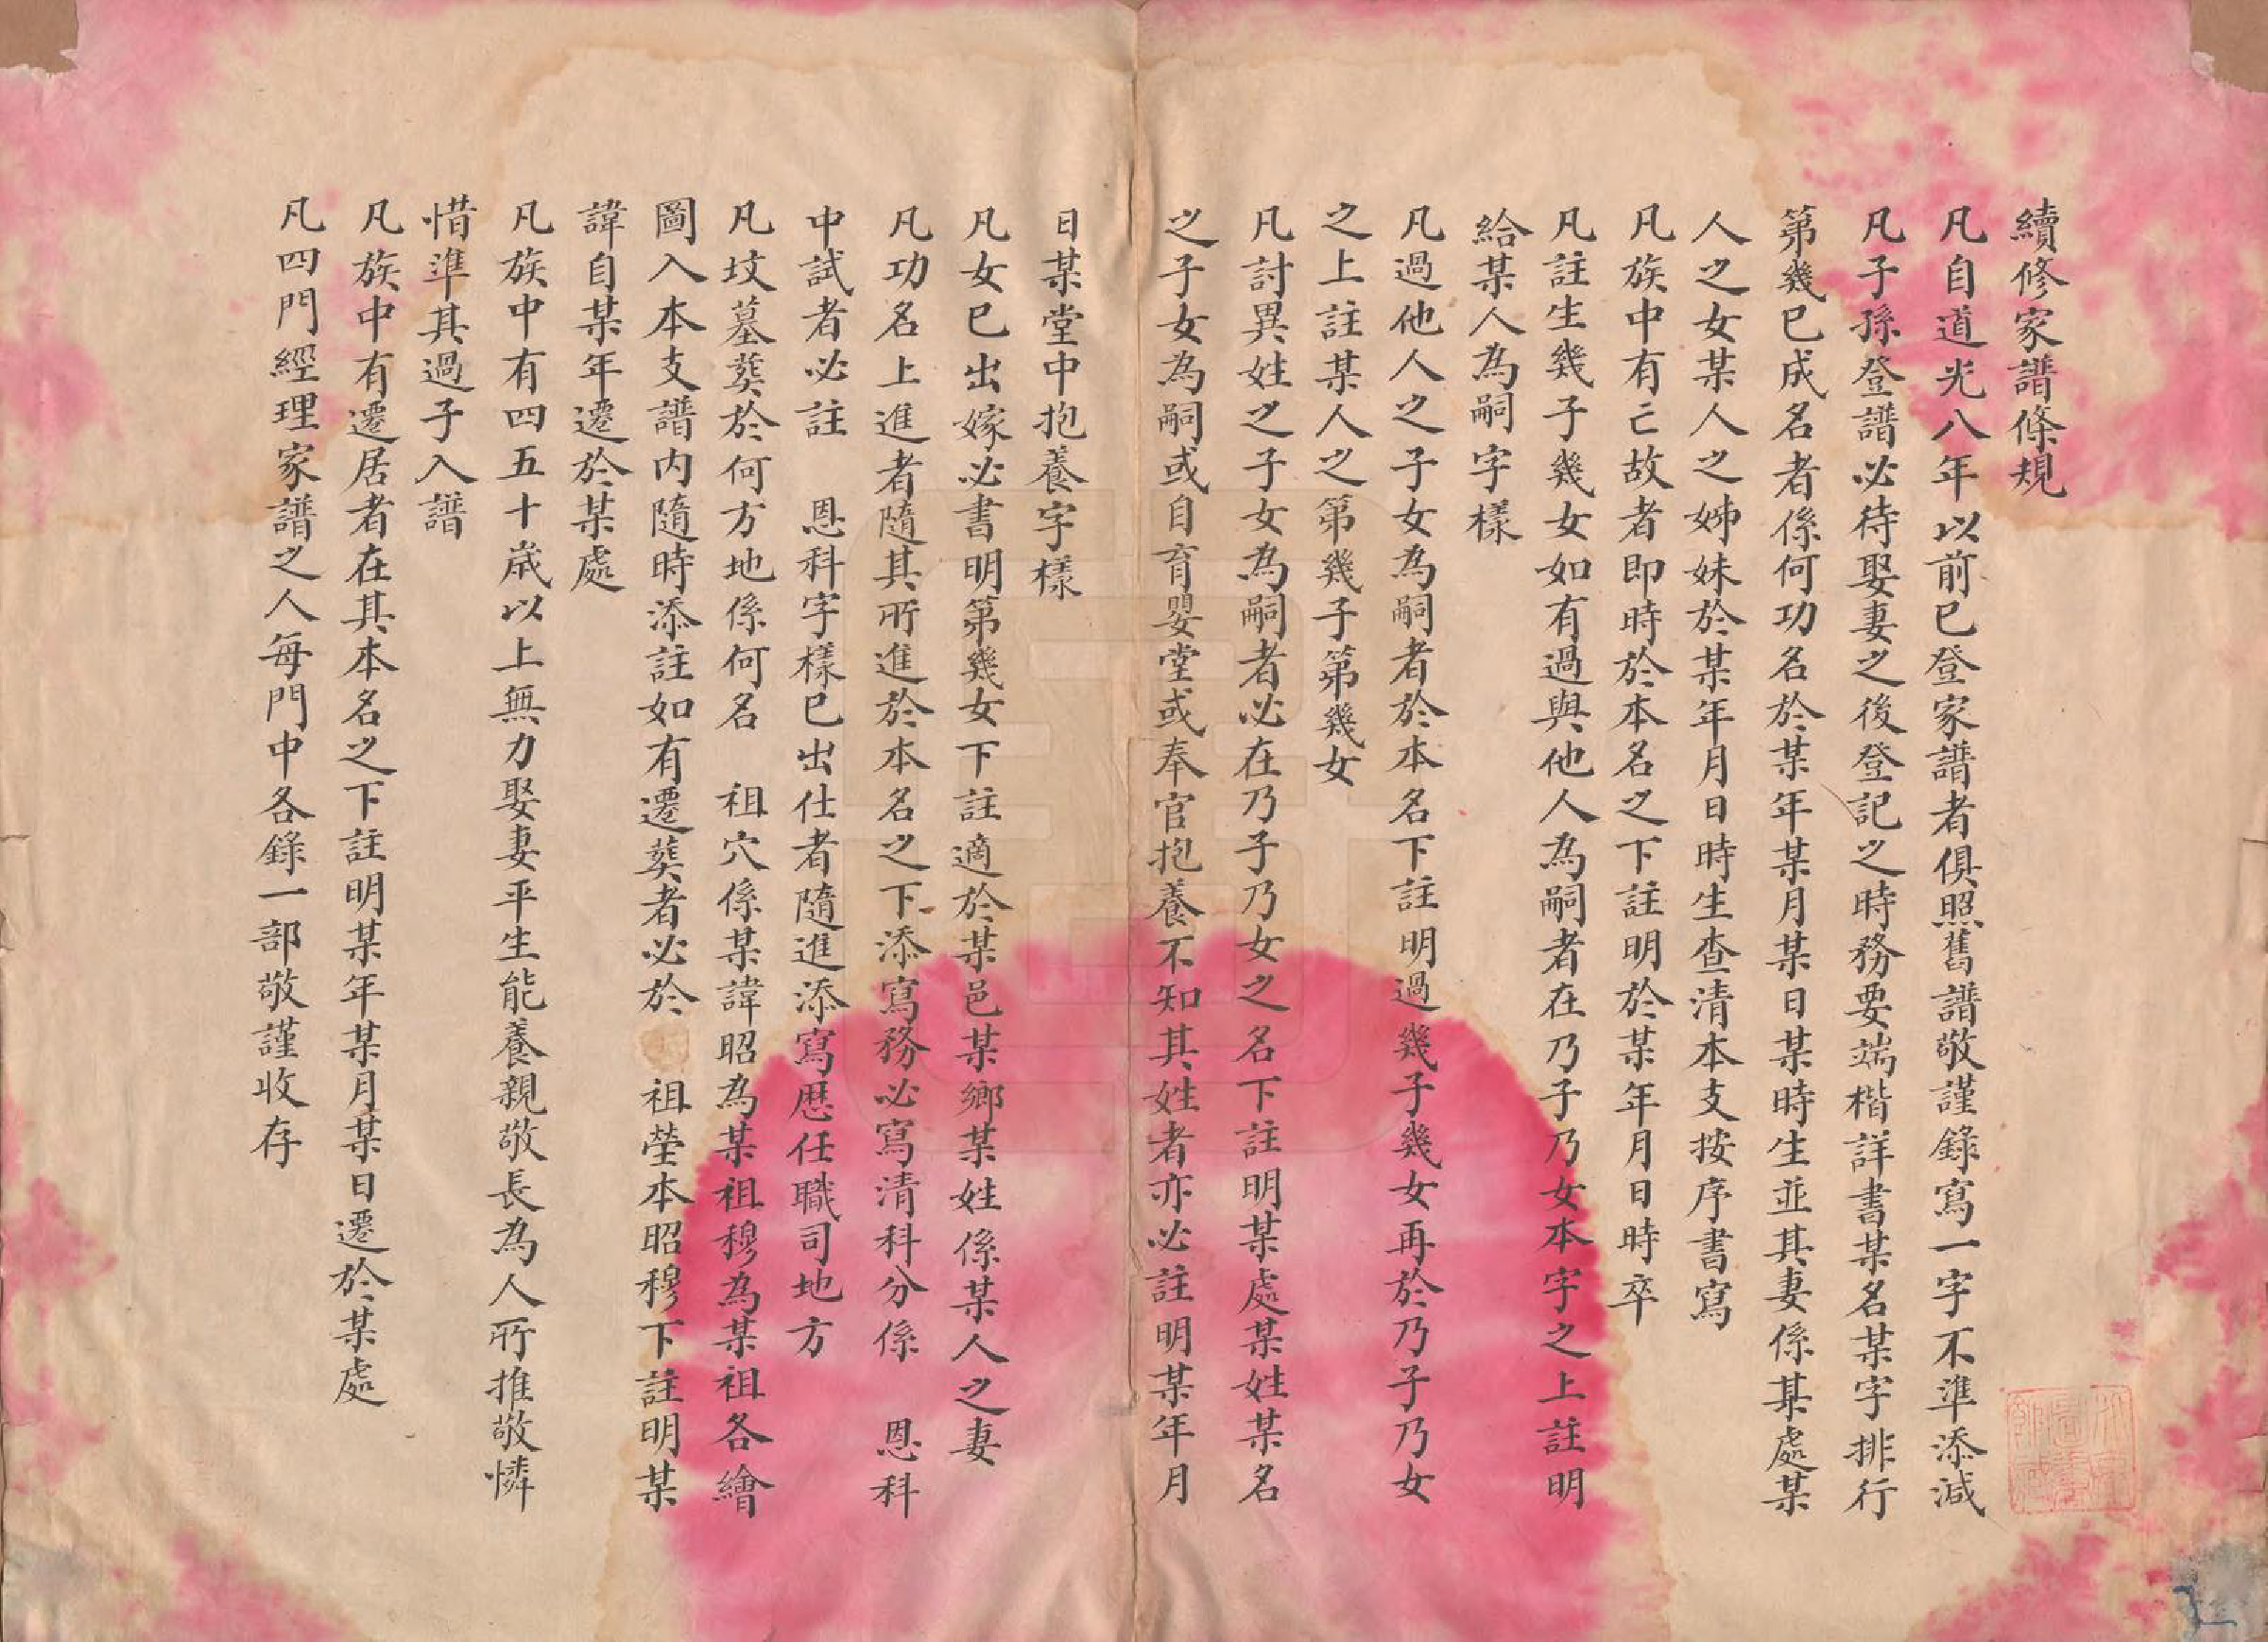 續修家譜條規
凡自道光八年以前已登家譜者俱照舊譜敬謹錄寫一字不準添減
凡子孫登譜必待娶妻之後登記之時務要端楷詳書某名某字排行
第幾已成名者係何功名於某年某月某日某時生並其妻係某處某
人之女某人之姊妹於某年月日時生查清本支按序書寫
凡族中有亡故者即時於本名之下註明於某年月日時卒
凡註生幾子幾女如有過與他人為嗣者在乃子乃女本字之上註明
給某人為嗣字樣
凡過他人之子女為嗣者於本名下註明過幾子幾女再於乃子乃女
之上註某人之第幾子第幾女
凡討異姓之子女為嗣者必在乃子乃女之名下註明某處某姓某名
之子女為嗣或自育嬰堂或奉官抱養不知其姓者亦必註明某年月
日某堂中抱養字樣
凡女已出嫁必書明第幾女下註適於某邑某鄉某姓係某人之妻
凡功名上進者隨其所進於本名之下添寫務必寫清科分係 恩科
中試者必註 恩科字樣已出仕者隨進添寫歷任職司地方
凡坟墓葬於何方地係何名 祖穴係某諱昭為某祖穆為某祖各繪
圖入本支譜内隨時添註如有遷葬者必於 祖塋本昭穆下註明某
諱自某年遷於某處
凡族中有四五十歲以上無力娶妻平生能養親敬長為人所推敬憐
惜準其過子入譜
凡族中有遷居者在其本名之下註明某年某月某日遷於某處
凡四門經理家譜之人每門中各錄一部敬謹收存